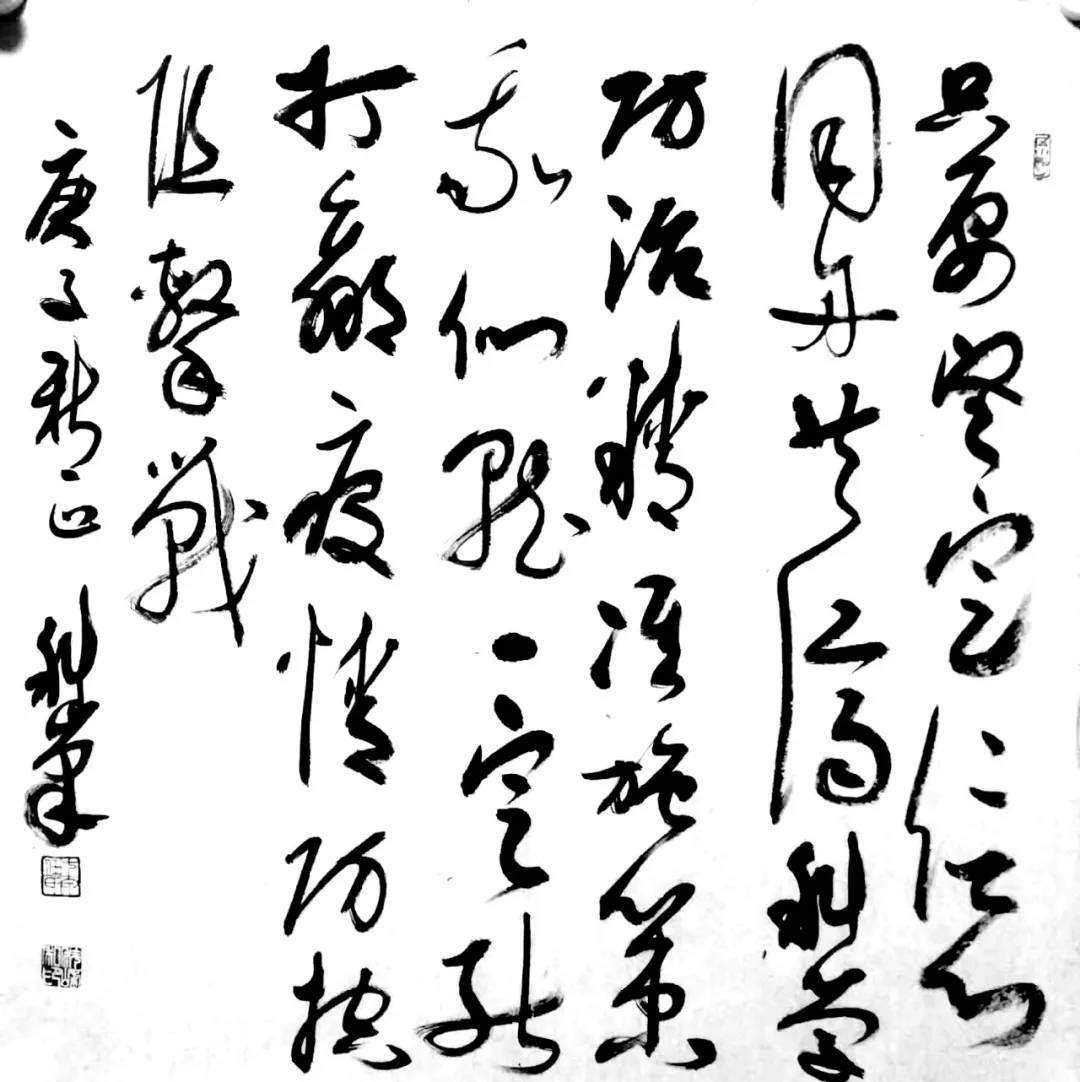 只要坚定信心
同舟共济科学
防治精准施策
我们就一定能
打赢疫情防控
阻击战
庚子新正